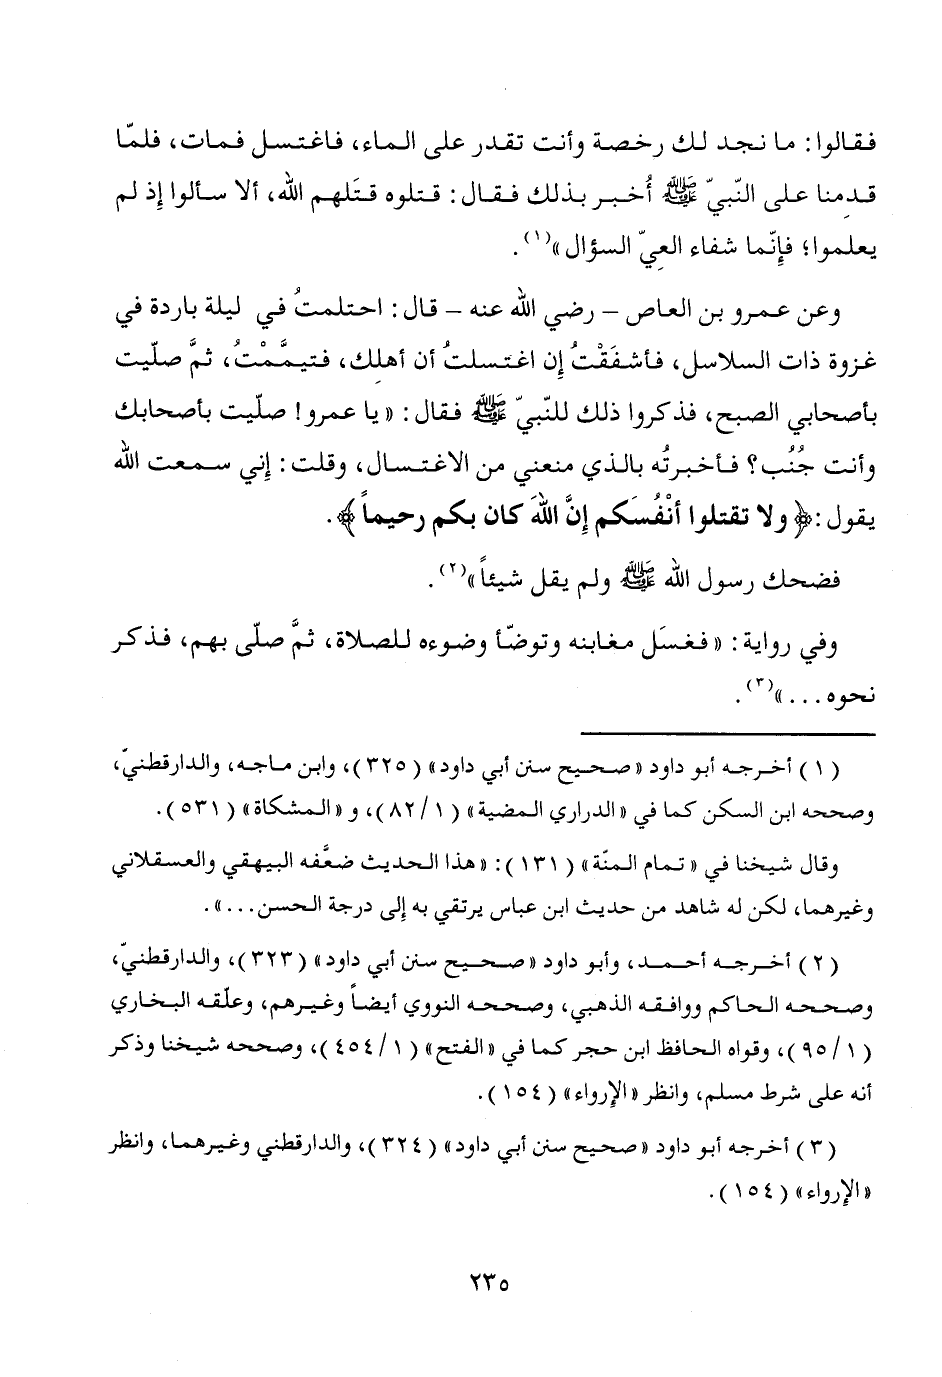 فقالوا: ما نجد لك رخصة وأنت تقدر على الماء، فاغتسل فمات، فلمّا
قدمنا على النّبيّ ﷺ أُخبر بذلك فقال: قتلوه قتَلهم الله، ألا سألوا إِذ لم
يعلموا؛ فإِنّما شفاء العِيّ السؤال»(١).
وعن عمرو بن العاص - رضي الله عنه - قال: احتلمتُ في ليلة باردة في
غزوة ذات السلاسل، فأشفَقْتُ إِن اغتسلتُ أن أهلِك، فتيمَّمْتُ، ثمَّ صلّيت
بأصحابي الصبح، فذكروا ذلك للنّبيّ ﷺ فقال: «يا عمرو! صلّيت بأصحابك
وأنت جُنُب؟ فأخبرتُه بالذي منعني من الاغتسال، وقلت: إِني سمعت الله
يقول: ﴿ولا تقتلوا أنْفُسَكم إِنَّ اللهَ كان بكم رحيماً﴾.
فضحك رسول الله ﷺ ولم يقل شيئاً»(٢).
وفي رواية: «فغسَل مغابنه وتوضّأ وضوءه للصلاة، ثمَّ صلّى بهم، فذكر
نحوه...»(٣).
(١) أخرجه أبو داود «صحيح سنن أبي داود» (٣٢٥)، وابن ماجه، والدارقطنيّ،
وصححه ابن السكن كما في «الدراري المضية» (١/٨٢)، و«المشكاة» (٥٣١).
وقال شيخنا في «تمام المنّة» (١٣١): «هذا الحديث ضعَّفه البيهقي والعسقلاني
وغيرهما، لكن له شاهد من حديث ابن عباس يرتقي به إِلى درجة الحسن...».
(٢) أخرجه أحمد، وأبو داود «صحيح سنن أبي داود» (٣٢٣)، والدارقطنيّ،
وصححه الحاكم ووافقه الذهبي، وصححه النووي أيضاً وغيرهم، وعلّقه البخاري
(١/٩٥)، وقواه الحافظ ابن حجر كما في «الفتح» (١/٤٥٤)، وصححه شيخنا وذكر
أنه على شرط مسلم، وانظر «الإِرواء» (١٥٤).
(٣) أخرجه أبو داود «صحيح سنن أبي داود» (٣٢٤)، والدارقطني وغيرهما، وانظر
«الإِرواء» (١٥٤).
٢٣٥